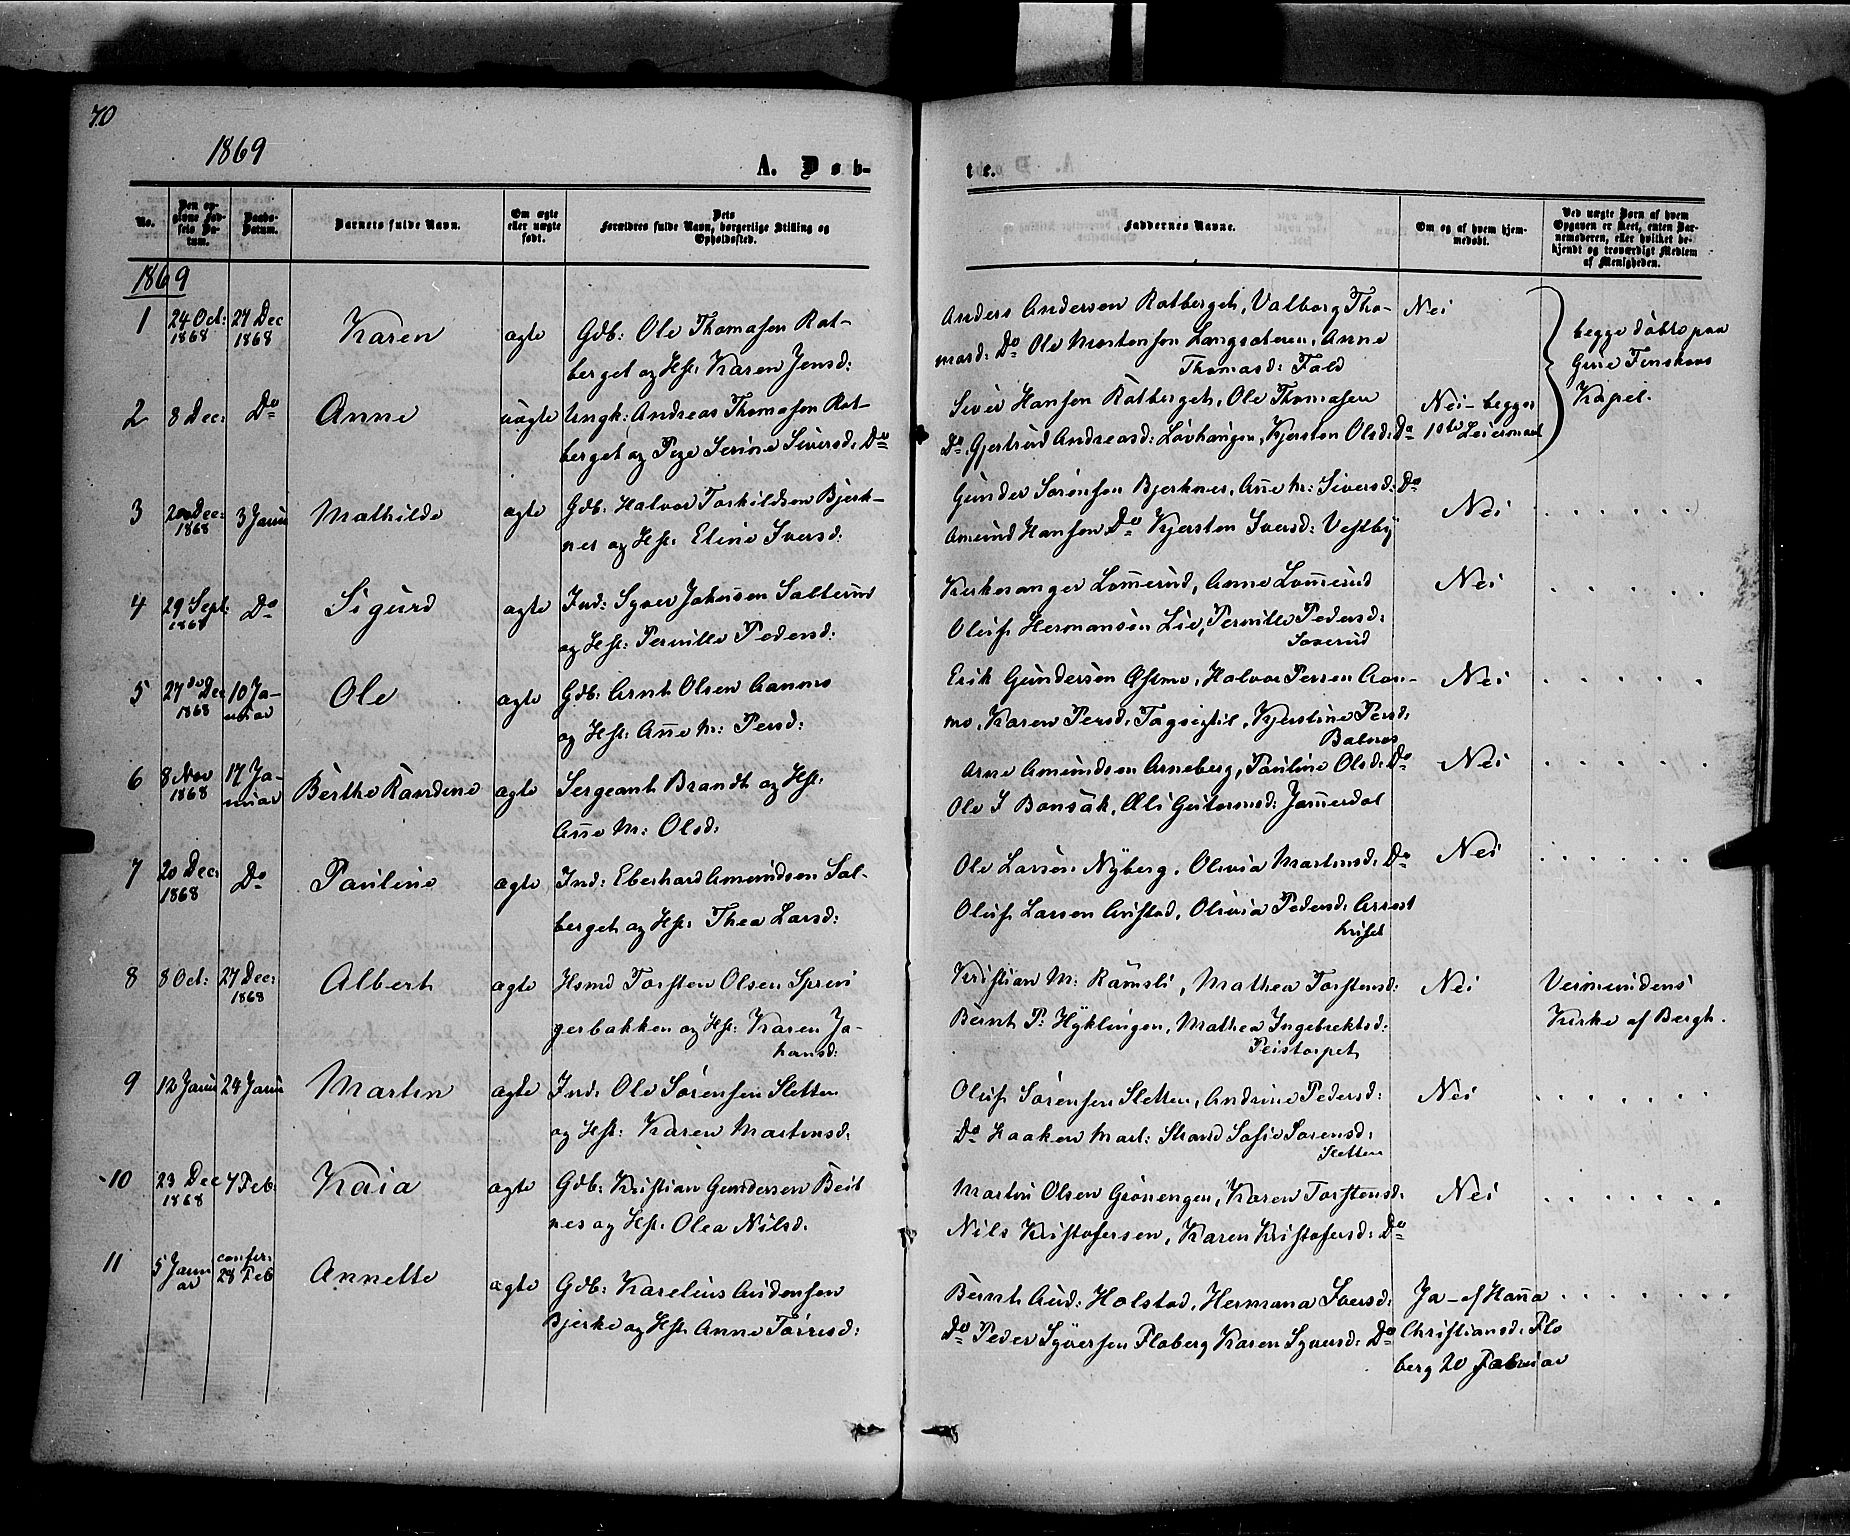 70
1869
A. Døb-
te.
No.
Den op-
givne Fød-
sels Da-
tum.
Daabs-
Datum.
Barnets fulde Navn.
Om ægte
eller uægte
født.
Dets
Forældres fulde Navn, borgerlige Stilling og
Opholdssted.
Faddernes Navne.
Om og af hvem hjem-
medøbt.
Ved uægte Børn af hvem
Opgaven er skeet, enten Bar-
nemoderen, eller hvilket be-
kjendt og troværdigt Medlem
af Menigheden.
1869
1 24 Oct: 1868 27 Dec 1868 Karen ægte Gdb: Ole Thomasen Rot-
berget og Hst: Karen Jensd:
Anders Andersen Rotberget, Valborg Tho-
masd: Do Ole Mortensen Langsæteren, Anne
Thomasd: Fald
Nei
begge døbte paa
Grue Finskovs
Kapel.
2 8 Dec: Do Anne uægte Ungk: Andreas Thomasen Rot-
berget og Pige Serine Siversd: Do
Siver Hansen Rotberget, Ole Thomasen
Do, Gjertrud Andreasd: Løvhaugen, Kjersten Olsd: Do
Nei - begges
1ste Leiermaal
3 20 Dec: 1868 3 Janu Mathilde ægte Gdb: Halvor Torkildsen Bjerk-
nes og Hst: Eline Iversd:
Gunder Sørensen Bjerknes, Ane M: Siversd: Do
Amund Hansen Do Kjersten Iversd: Vestby
Nei
4 29 Sept: 1868 Do Sigurd ægte Ind: Syver Johnsen Salterud
og Hst: Pernille Pedersd:
Kirkesanger Lomerud, Anne Lomerud
Oluf Hermansen Lie, Pernille Pedersd:
Soverud
Nei
5 27de Dec 1868 10 Ja-
nuar Ole ægte Gdb: Arnt Olsen Aanmo
og Hst: Ane M: Persd:
Erik Gundersen Østmo, Halvor Persen Aan-
mo, Karen Persd: Tagsigtil, Kjerstine Persd:
Balnes
Nei
6 8 Nov 1868 17 Ja-
nuar Berthe Randine ægte Sergeant Brandt og Hst:
Ane M: Olsd:
Arne Amundsen Arneberg, Pauline Olsd: Do
Ole I Bonsak, Eli Guttormsd: Jamerdal
Nei
7 20 Dec: 1868 Do Pauline ægte Ind: Eberhard Amundsen Sol-
berget og Hst: Thea Larsd:
Ole Larsen Nyberg, Olivia Martinsd: Do
Oluf Larsen Aristad, Olivia Pedersd: Arrest
huset
Nei
8 8 Oct: 27 Dec: 1868 Albert ægte Hsmd Torsten Olsen Sprin
gerbakken og Hst: Karen Jo-
hansd:
Kristian M: Ramsli, Mathea Torstensd:
Bernt P: Hyklingen, Mathea Ingebrektsd:
Peistorpet
Nei
Vermundens
Kirke af Bergh.
9 12 Janu 24 Janu Martin ægte Ind: Ole Sørensen Sletten
og Hst: Karen Martinsd:
Oluf Sørensen Sletten, Andrine Pedersd:
Do Haaken Mart: Strand Sofie Sorensd:
Sletten
Nei
10 23 Dec 1868 7 Feb: Kaia ægte Gdb: Kristian Gundersen Beit
nes og Hst: Olea Nilsd:
Martin Olsen Grønengen, Karen Torstensd:
Nils Kristofersen, Karen Kristofersd: Do
Nei
11 5 Janu
ar confir:
28 Feb Annette ægte Gdb: Karelius Audensen
Bjerke og Hst: Anne Torresd:
Bernt Aud: Holstad, Hermana Iversd:
Do Peder Syversen Floberg Karen Syversd: Do
Ja - af Hanna
Christiansd: Flo
berg 20 Februar